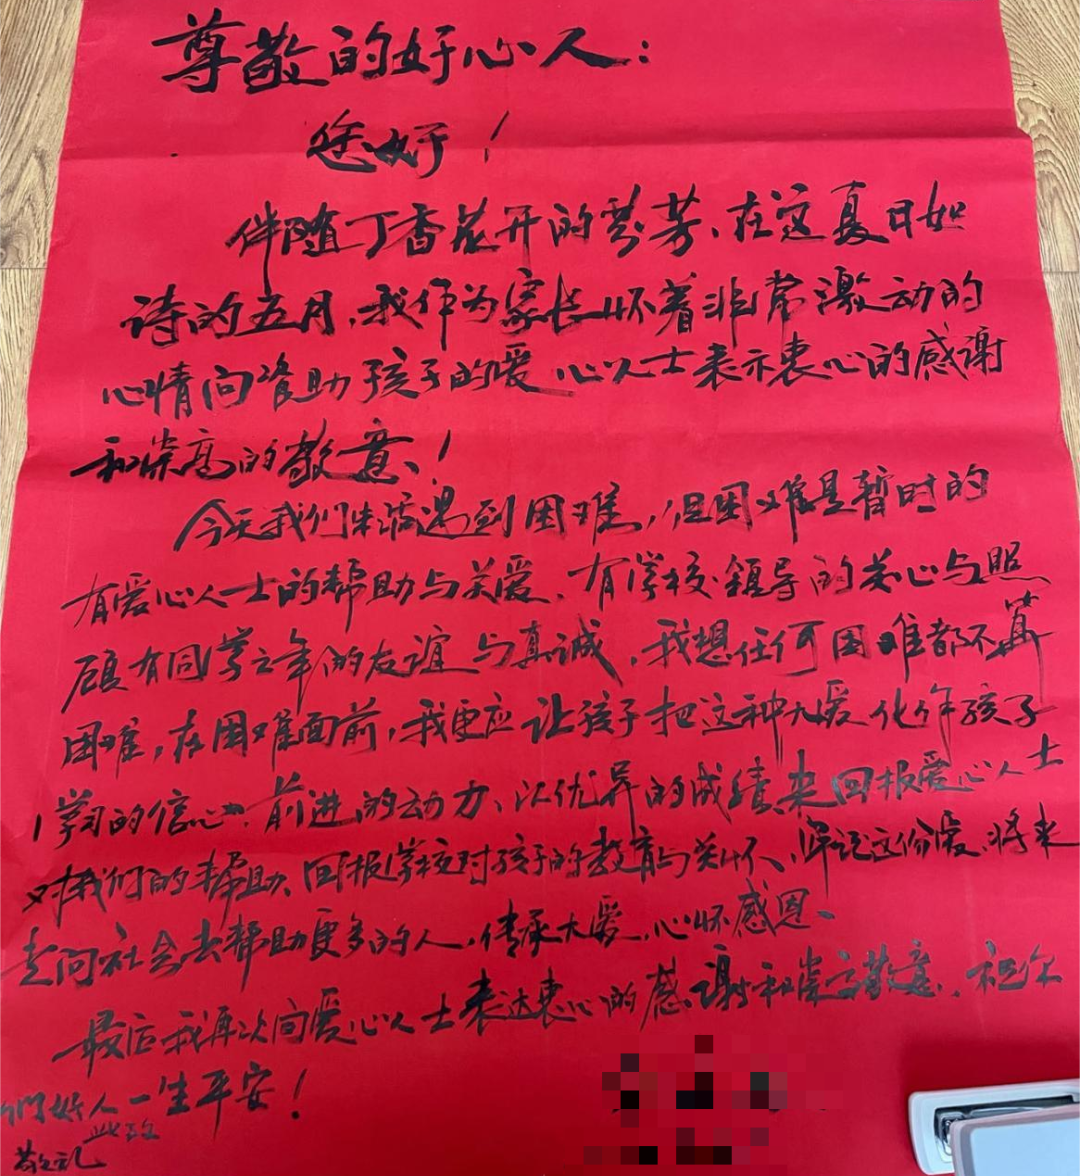 尊敬的好心人：
您好！
伴随丁香花开的芬芳、在这夏日如
诗的五月，我作为家长怀着非常激动的
心情向资助孩子的爱心人士表示衷心的感谢
和崇高的敬意！
今天我们生活遇到困难，但困难是暂时的
有爱心人士的帮助与关爱、有学校领导的关心与照
顾有同学之年的友谊与真诚，我想任何困难都不算
困难，在困难面前，我更应让孩子把这种大爱化作孩子
学习的信心、前进的动力、以优异的成绩来回报爱心人士
对我们的帮助、回报学校对孩子的教育与关怀、牢记这份爱、将来
走向社会去帮助更多的人，传承大爱，心怀感恩、
最后我再次向爱心人士表达衷心的感谢和崇高敬意、祝你
们好人一生平安！
此致
敬礼